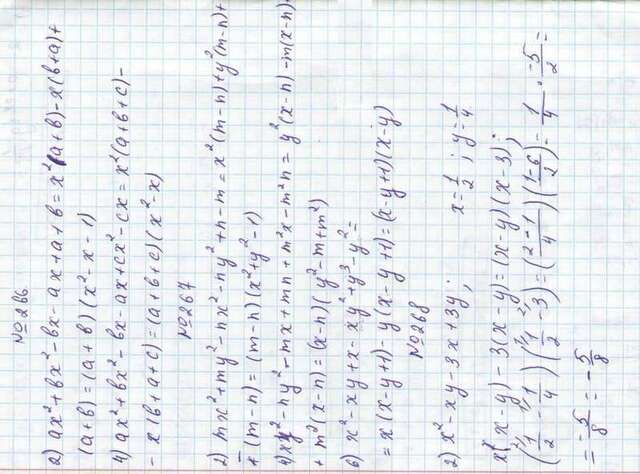 №266
2) ax²+bx²-bx-ax+a+b=x²(a+b)-x(b+a)+
(a+b)=(a+b)(x²-x-1)
4) ax²+bx²-bx-ax+cx²-cx=x²(a+b+c)-
-x(b+a+c)=(a+b+c)(x²-x)
№267
2) mx²+my²-nx²-ny²+n-m=x²(m-n)+y²(m-n)+
+(m-n)=(m-n)(x²+y²-1)
4) xy²-ny²-mx+mn+m²x-m²n=y²(x-n)-m(x-n)+
+m²(x-n)=(x-n)(y²-m+m²)
6) x²-xy+x-xy²+y³-y²=
=x(x-y+1)-y(x-y+1)=(x-y+1)(x-y)
№268
2) x²-xy-3x+3y; x=1/2; y=1/4
x(x-y)-3(x-y)=(x-y)(x-3);
(1/2-1/4)(1/2-3)=((2-1)/4)((1-6)/2)=1/4·-5/2=
=-5/8=-5/8